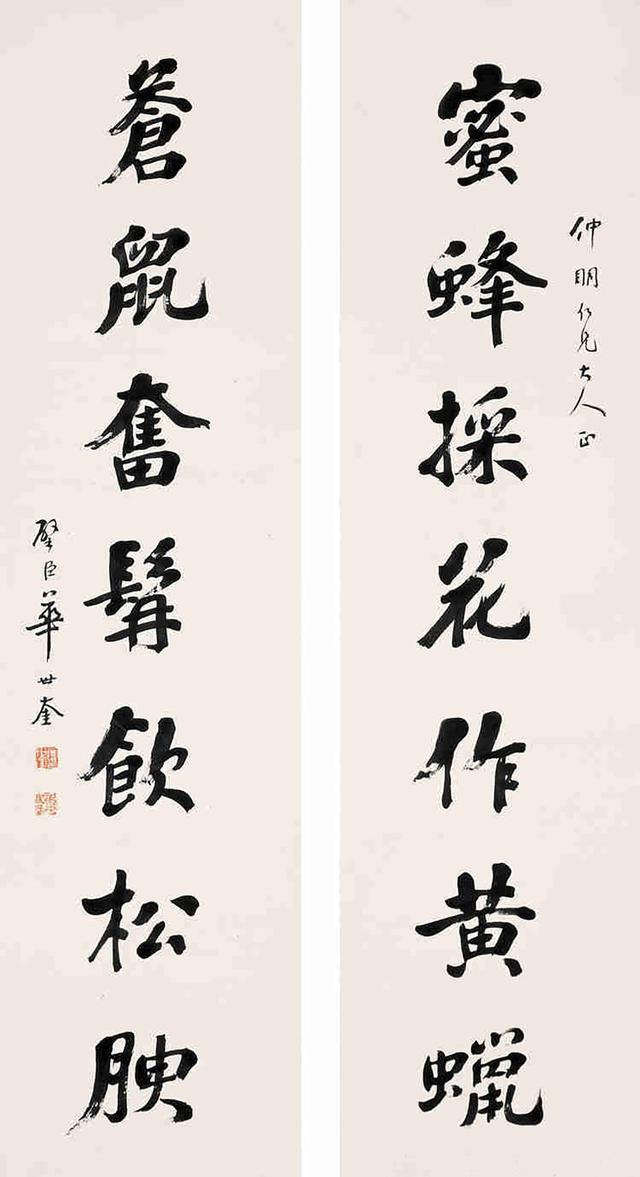 仲明仁兄大人正
蜜蜂採花作黄蠟
蒼鼠奮髯飲松腴
璧臣華世奎